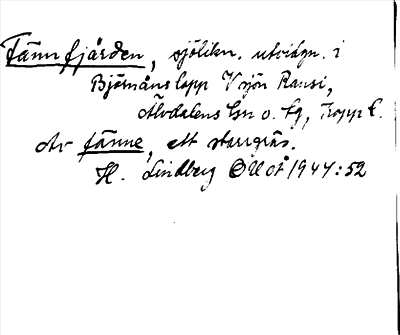 Fännfjärden, sjölikn. utvidgn. i
Björnåns lopp V sjön Ransi,
Älvdalens sn o. tg, Kopp l.
Av fänne, ett starrgräs.
H. Lindberg ÖUoÅ 1947:52